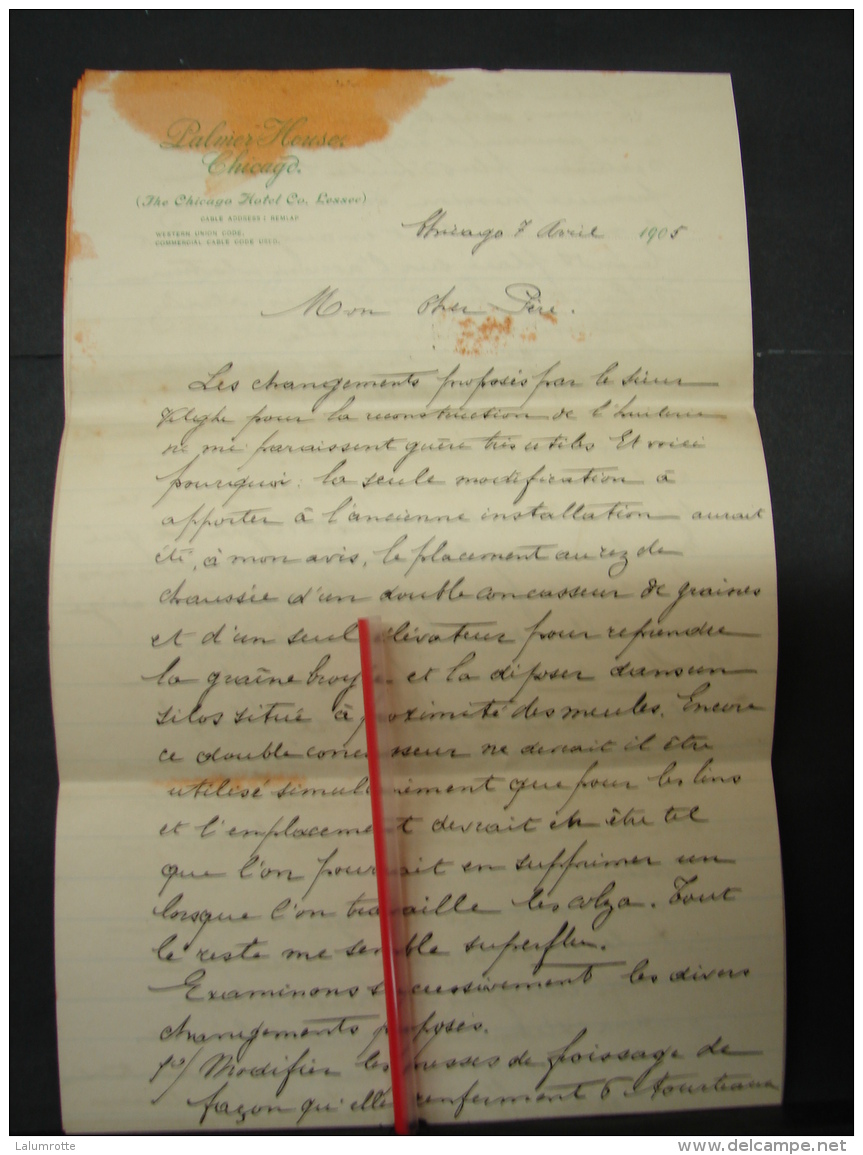 Palmer House
Chicago.
(The Chicago Hotel Co. Lessee)
CABLE ADDRESS: REMLAP
WESTERN UNION CODE,
COMMERCIAL CABLE CODE USED.
Chicago 7 Avril 1905
Mon Cher Père.
Les changements proposés par le sieur
pour la reconstruction de l'huilerie
ne me paraissent guère très utiles Et voici
pourquoi: la seule modification à
apporter à l'ancienne installation aurait
été, à mon avis, le placement au rez de
chaussée d'un double concasseur de graines
et d'un seul élévateur pour reprendre
la graine broyée et la déposer dans un
silos situé à proximité des meules. Encore
ce double concasseur ne devrait il être
utilisé simultanément que pour les lins
et l'emplacement devrait en être tel
que l'on pourrait en supprimer un
lorsque l'on travaille les colza. Tout
le reste me semble superflu.
Examinons successivement les divers
changements proposés.
1º/ Modifier les presses de froissage de
façon qu'elles renferment 6 tourteaux
Lalumrotte
www.delcampe.net